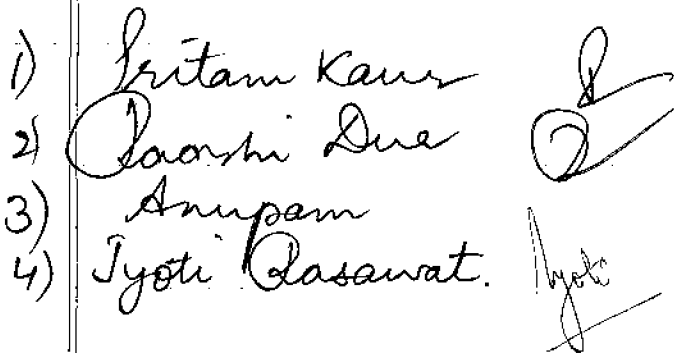 1) Pritam Kaur
2) Dua
3) Anupam
4) Jyoti Rasawat. Jyoti